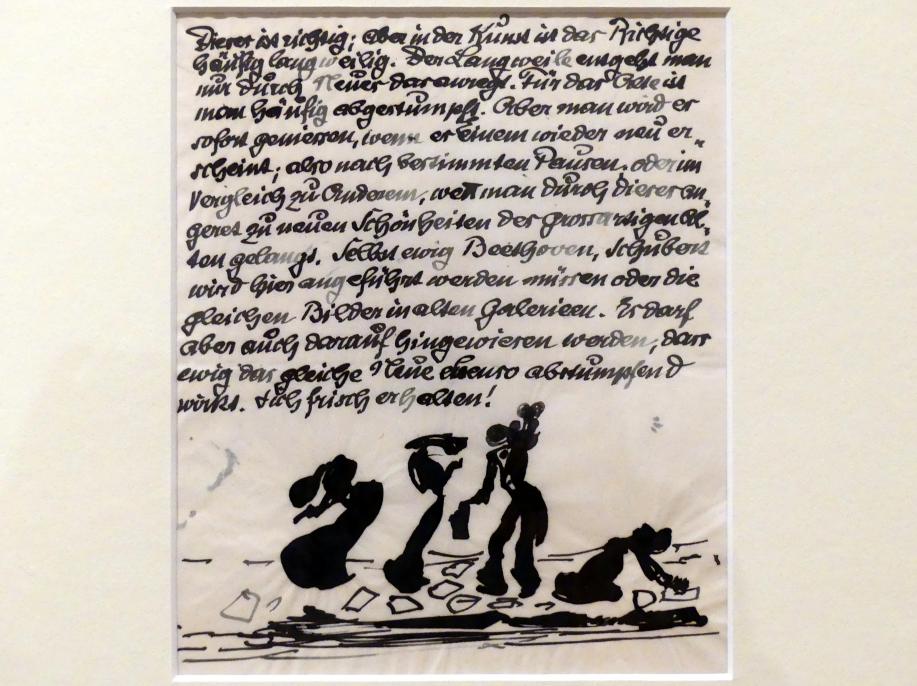 Dieses ist richtig; aber in der Kunst ist das Richtige
häufig langweilig. Der Langweile entgeht man
nur durch Neues das anregt. Für das Gute ist
man häufig abgestumpft. Aber man wird es
sofort geniessen, wenn es einem wieder neu er-
scheint; also nach bestimmten Pausen, oder im
Vergleich zu Anderem, weil man durch dieses an-
geregt zu neuen Schönheiten des grossartigen Al-
ten gelangt. Selbst ewig Beethoven, Schubert
wird hier angeführt werden müssen oder die
gleichen Bilder in alten Galerieen. Es darf
aber auch darauf hingewiesen werden, dass
ewig das gleiche Neue ebenso abstumpfend
wirkt. Sich frisch erhalten!